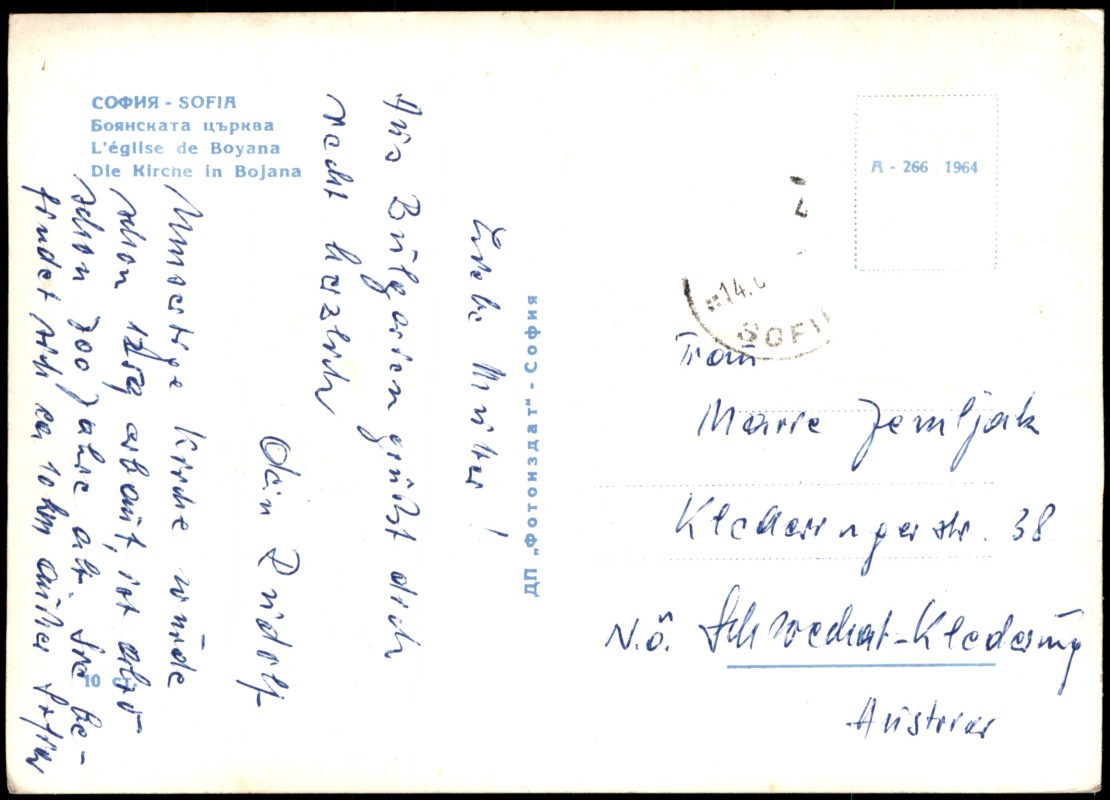 СОФИЯ - SOFIA
Боянската църква
L'église de Boyana
Die Kirche in Bojana
Liebe Mutter!
Aus Bulgarien grüßt dich
recht herzlich
Dein Rudolf
Umseitige Kirche wurde
schon 1259 erbaut, ist also
schon 700 Jahre alt. Sie be-
findet sich ca 10 km außer Sofia
10 ст.
ДП „Фотоиздат" - София
A - 266 1964
14.
SOFI
Frau
Marie Zemljak
Kledaringerstr. 38
N.Ö. Schwechat-Kledering
Austria